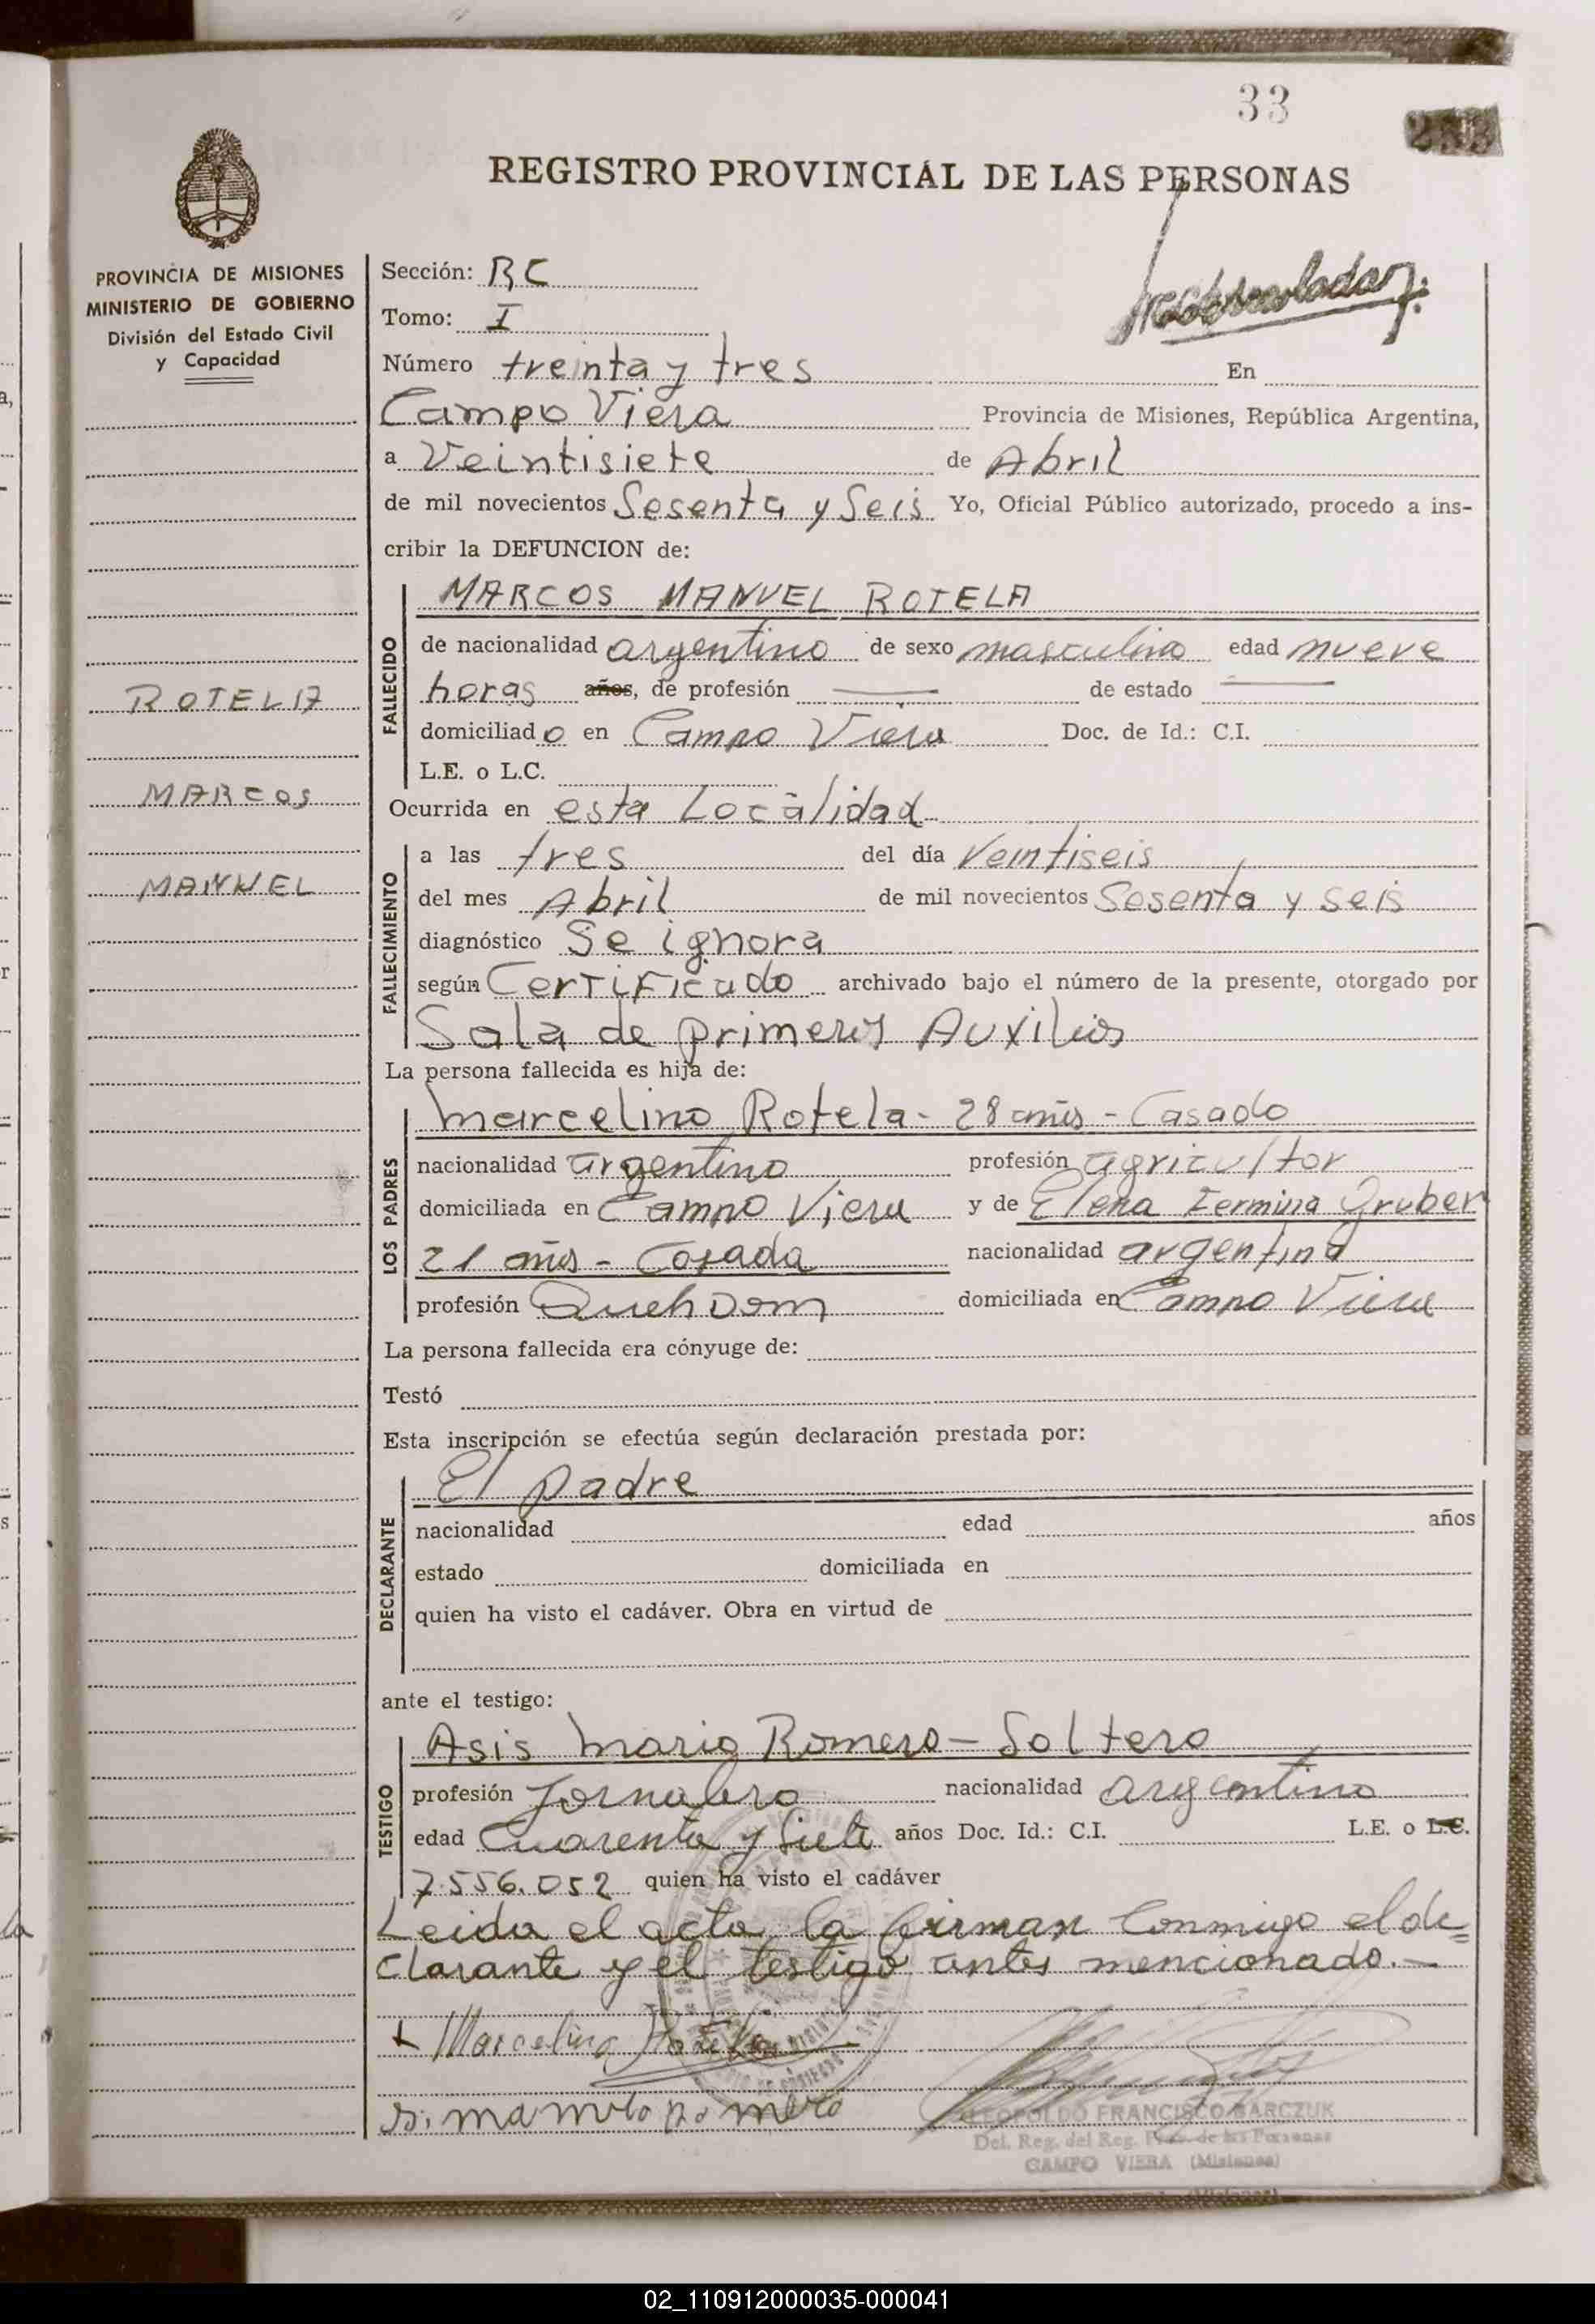 33
REGISTRO PROVINCIAL DE LAS PERSONAS
PROVINCIA DE MISIONES
MINISTERIO DE GOBIERNO
División del Estado Civil
y Capacidad
ROTELA
MARCOS
MANUEL
Sección: RC
Tomo: I
Número treinta y tres En
Campo Viera Provincia de Misiones, República Argentina,
a Veintisiete de Abril
de mil novecientos Sesenta y Seis Yo, Oficial Público autorizado, procedo a ins-
cribir la DEFUNCION de:
FALLECIDO
MARCOS MANUEL ROTELA
de nacionalidad argentino de sexo masculino edad nueve
horas años, de profesión — de estado —
domiciliado en Campo Viera Doc. de Id.: C.I.
L.E. o L.C.
Ocurrida en esta Localidad
FALLECIMIENTO
a las tres del día Veintiseis
del mes Abril de mil novecientos Sesenta y seis
diagnóstico Se ignora
según Certificado archivado bajo el número de la presente, otorgado por
Sala de primeros Auxilios
La persona fallecida es hija de:
LOS PADRES
Marcelino Rotela - 28 años - Casado
nacionalidad argentino profesión agricultor
domiciliada en Campo Viera y de Elena Fermina Gruber
21 años - Casada nacionalidad argentina
profesión Queh Dom domiciliada en Campo Viera
La persona fallecida era cónyuge de:
Testó
Esta inscripción se efectúa según declaración prestada por:
DECLARANTE
El padre
nacionalidad edad años
estado domiciliada en
quien ha visto el cadáver. Obra en virtud de
ante el testigo:
TESTIGO
Asis Mario Romero - Soltero
profesión Jornalero nacionalidad argentino
edad Cuarenta y Siete años Doc. Id.: C.I. L.E. o L.C.
7.556.052 quien ha visto el cadáver
Leida el acta, la firman conmigo el de=
clarante y el testigo antes mencionado.-
Marcelino Rotela
romero
LEOPOLDO FRANCISCO BARCZUK
Del. Reg. del Reg. Prov. de las Personas
CAMPO VIERA (Misiones)
02_110912000035-000041